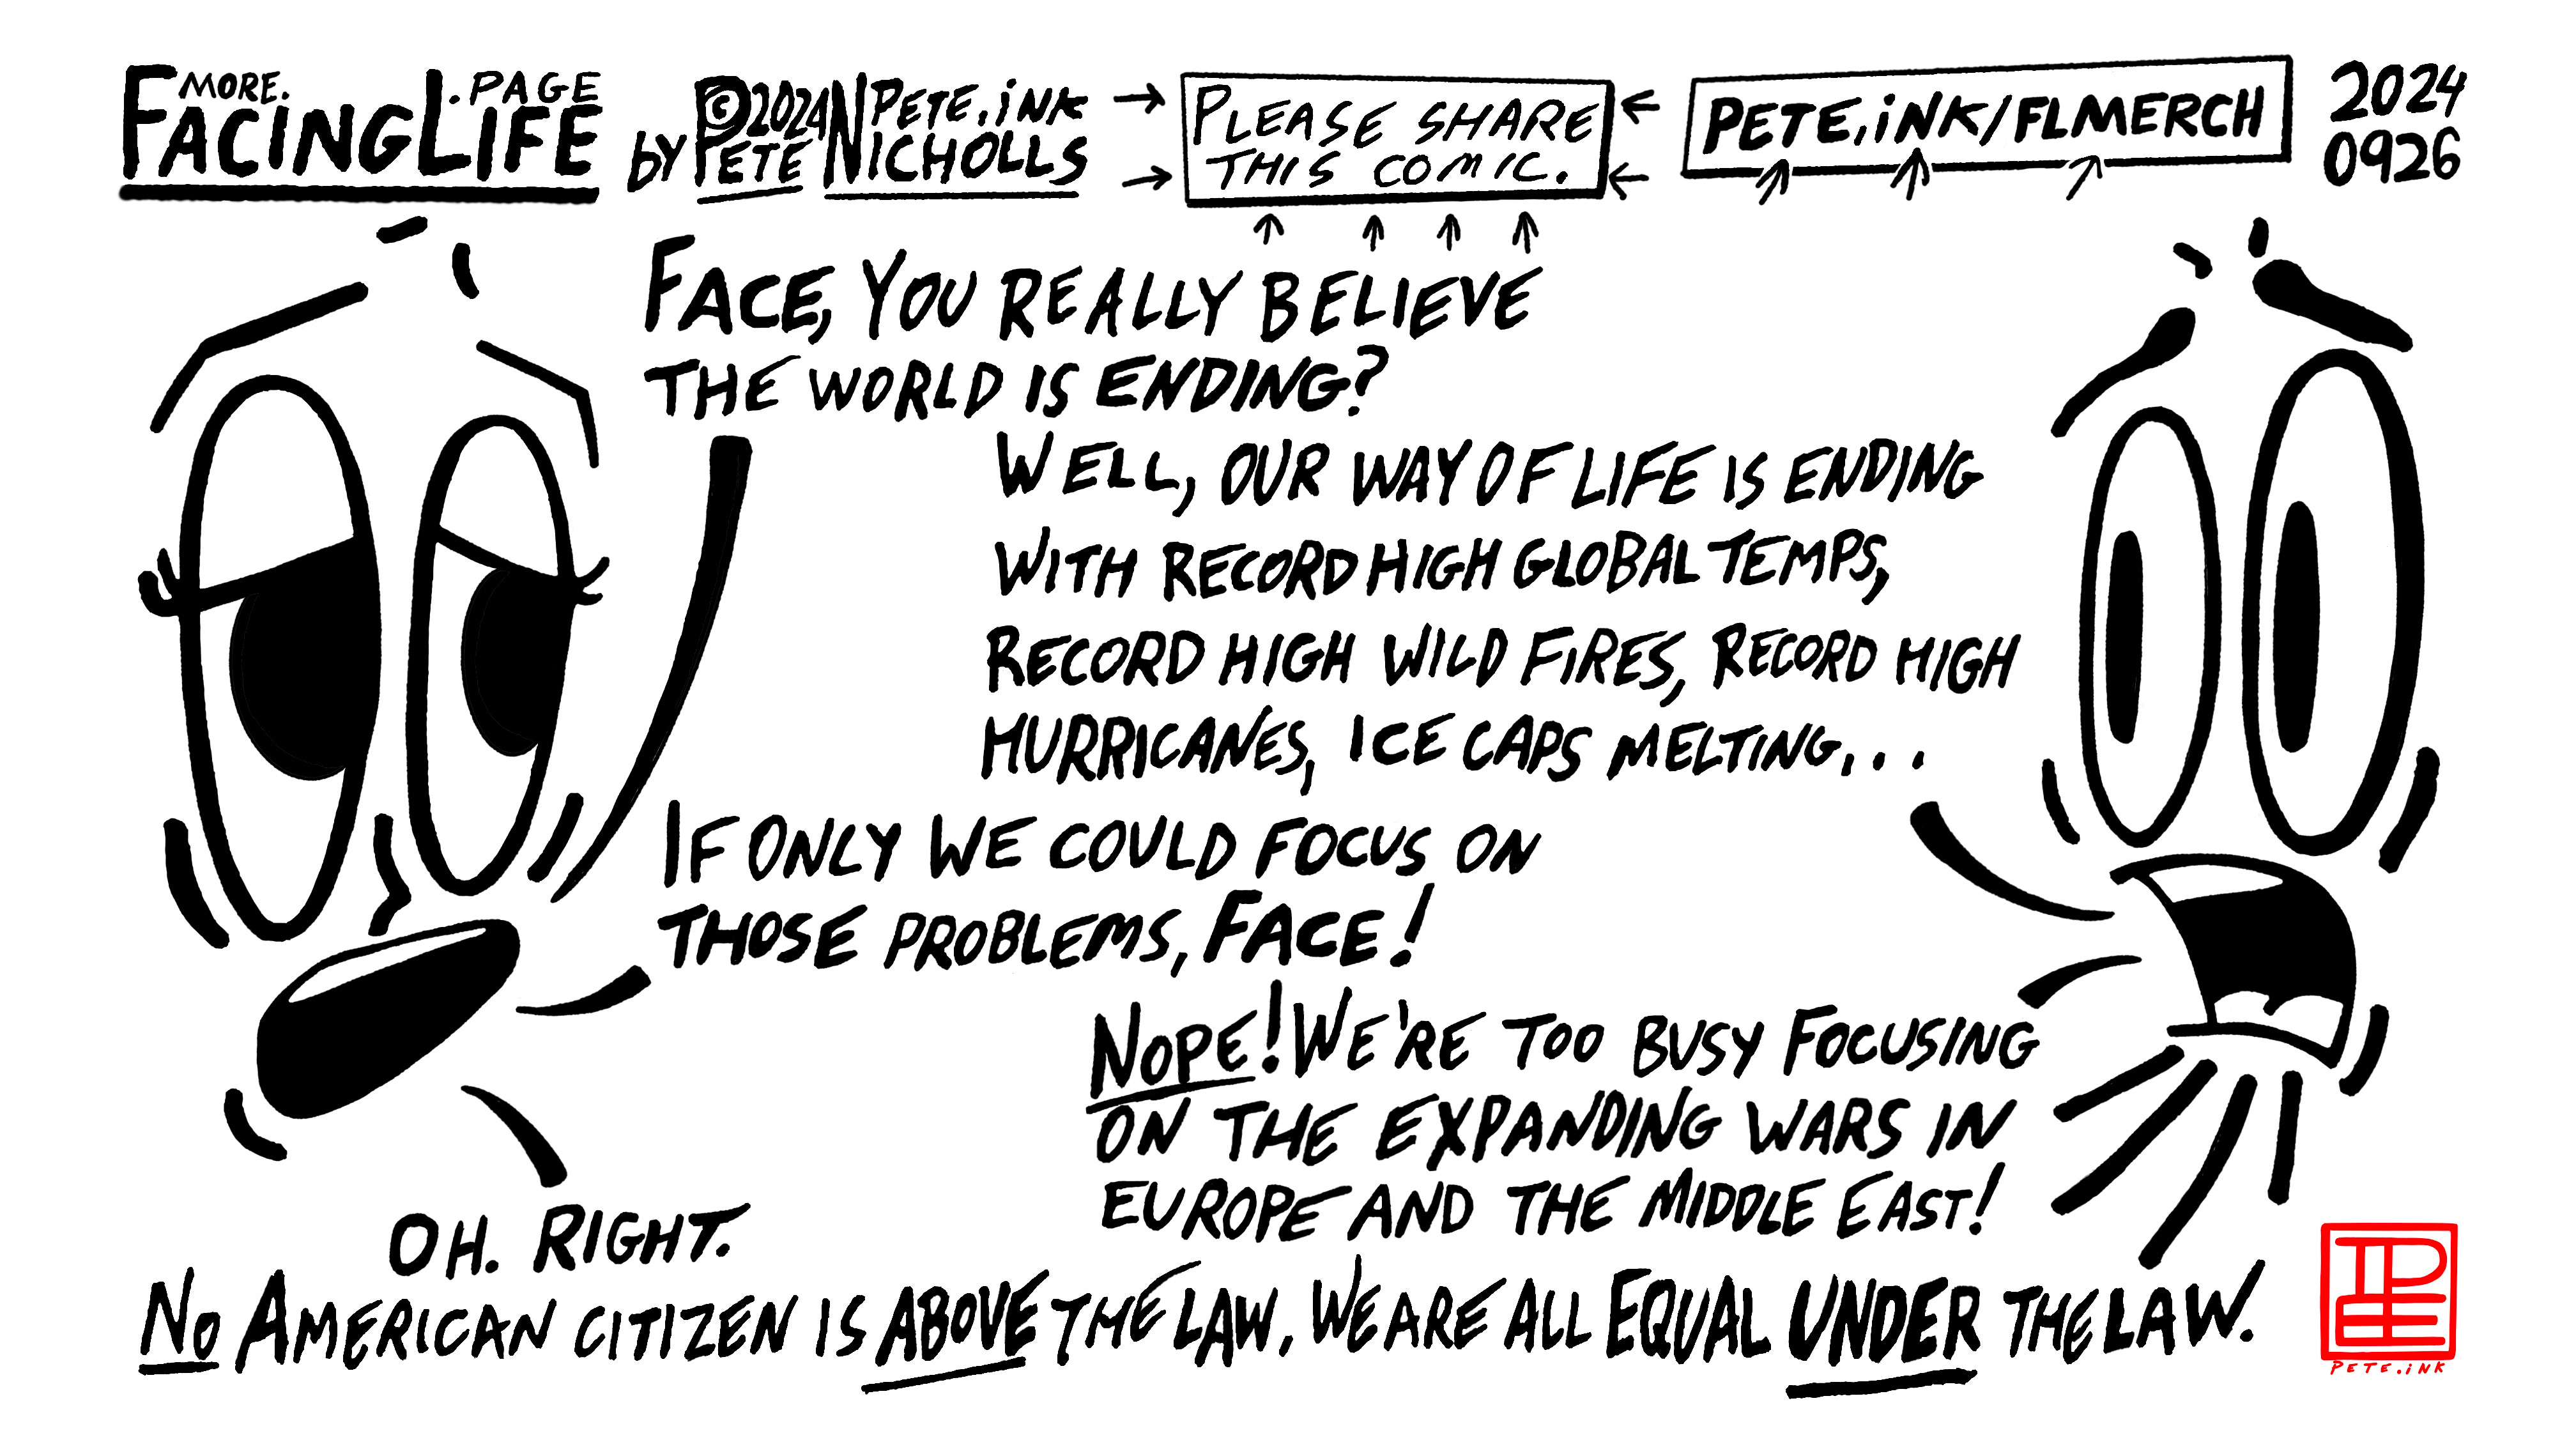 MORE.FACINGLIFE.PAGE
by PETE NICHOLLS ©2024 PETE.iNK
PLEASE SHARE
THIS COMIC.
PETE.iNK/FLMERCH
2024
0926
FACE, YOU REALLY BELIEVE
THE WORLD IS ENDING?
WELL, OUR WAY OF LIFE IS ENDING
WITH RECORD HIGH GLOBAL TEMPS,
RECORD HIGH WILD FIRES, RECORD HIGH
HURRICANES, ICE CAPS MELTING...
IF ONLY WE COULD FOCUS ON
THOSE PROBLEMS, FACE!
NOPE! WE'RE TOO BUSY FOCUSING
ON THE EXPANDING WARS IN
EUROPE AND THE MIDDLE EAST!
OH. RIGHT.
NO AMERICAN CITIZEN IS ABOVE THE LAW. WE ARE ALL EQUAL UNDER THE LAW.
PETE.iNK